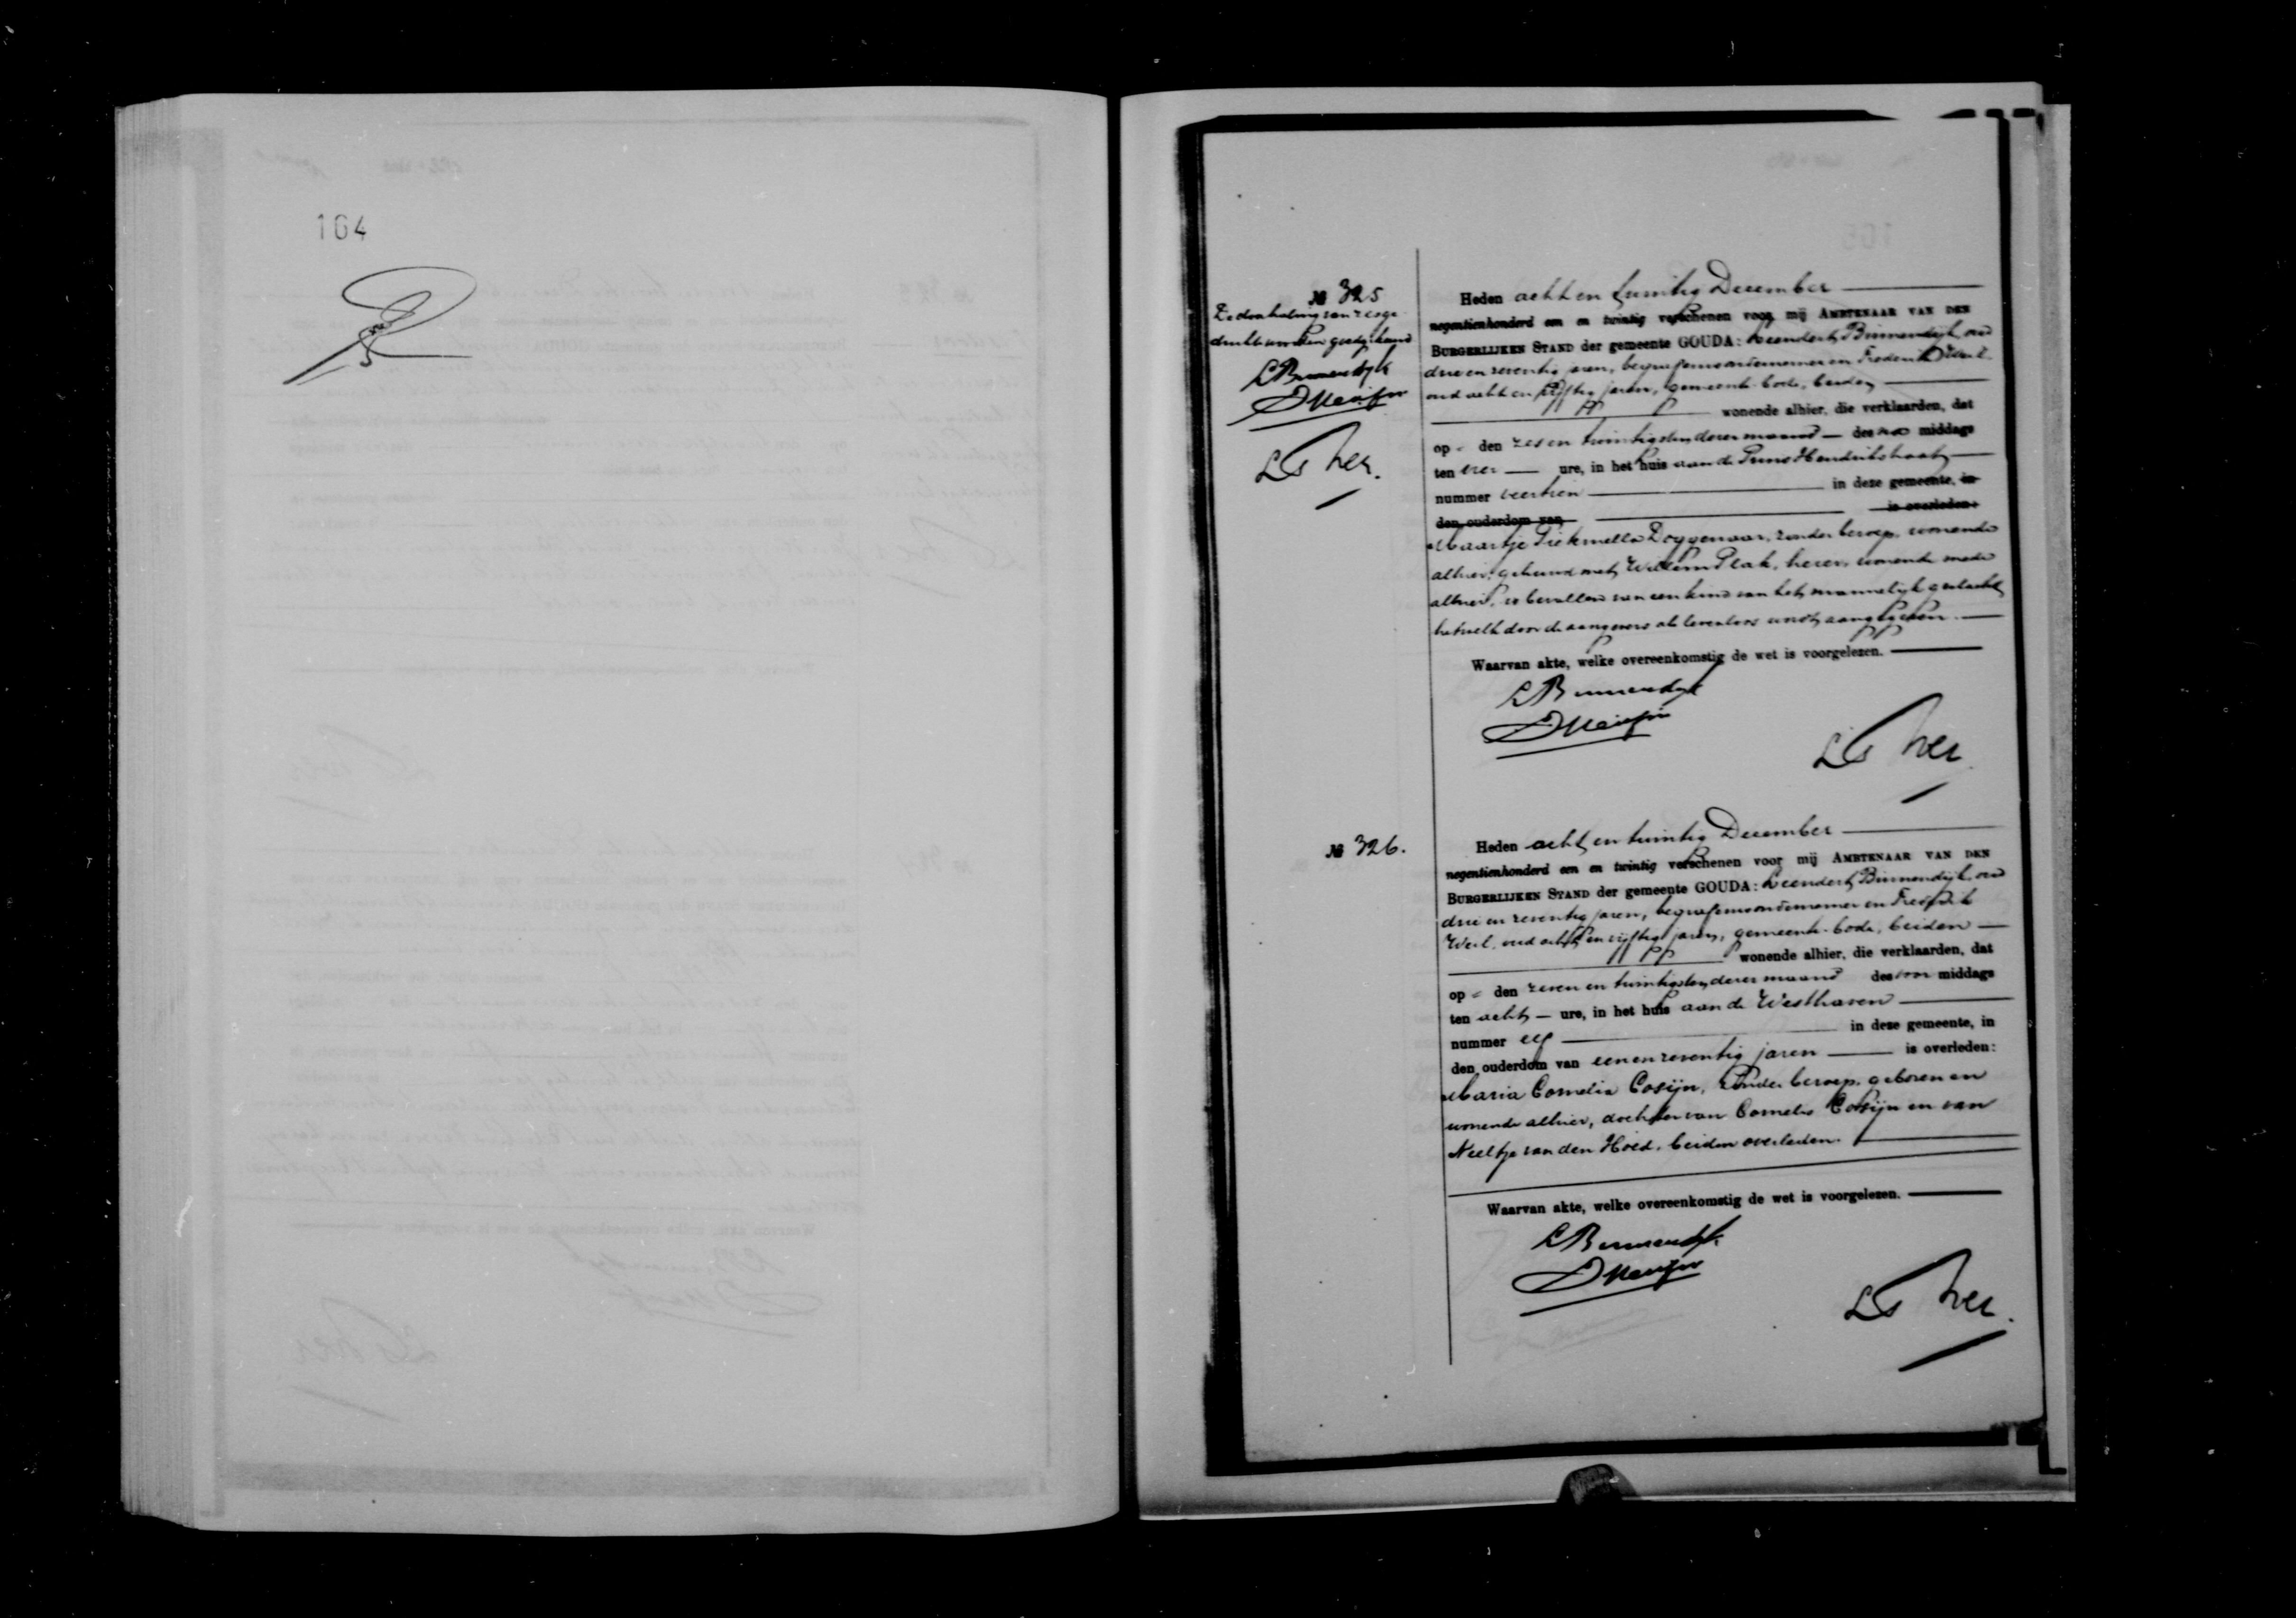 164
№ 325
De doorhaling van zes ge
drukte woorden goedgekeurd
LBinnendijk
Heden acht en twintig December
negentienhonderd een en twintig verschenen voor mij AMBTENAAR VAN DEN
BURGERLIJKEN STAND der gemeente GOUDA: Leendert Binnendijk, oud
drie en zeventig jaren, begrafenisondernemer en Frederik Weil
oud acht en vijftig jaren, gemeente-bode, beiden
wonende alhier, die verklaarden, dat
op den zes en twintigsten dezer maand des na middags
ten vier ure, in het huis aan de Prins Hendrikstraat
nummer veertien in deze gemeente, in
den ouderdom van is overleden:
Maartje Piekmella Doggenaar, zonder beroep, wonende
alhier, gehuwd met Willem Plak, heien, wonende mede
alhier, is bevallen van een kind van het mannelijk geslacht
hetwelk door de aangevers als levenloos wordt aangegeven.
Waarvan akte, welke overeenkomstig de wet is voorgelezen.
LBinnendijk
№ 326.
Heden acht en twintig December
negentienhonderd een en twintig verschenen voor mij AMBTENAAR VAN DEN
BURGERLIJKEN STAND der gemeente GOUDA: Leendert Binnendijk, oud
drie en zeventig jaren, begrafenisondernemer en Frederik
Weil, oud acht en vijftig jaren, gemeente-bode, beiden
wonende alhier, die verklaarden, dat
op den zeven en twintigsten dezer maand des voor middags
ten acht ure, in het huis aan de Westhaven
nummer elf in deze gemeente, in
den ouderdom van een en zeventig jaren is overleden:
Maria Cornelia Cosijn, zonder beroep, geboren en
wonende alhier, dochter van Cornelis Cosijn en van
Neeltje van den Hoed, beiden overleden.
Waarvan akte, welke overeenkomstig de wet is voorgelezen.
LBinnendijk